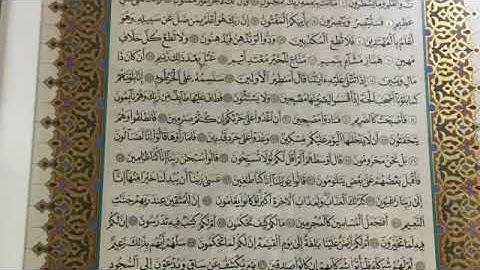 عَظِيمٍ ۝ فَسَتُبْصِرُ وَيُبْصِرُونَ ۝ بِأَييِّكُمُ الْمَفْتُونُ ۝ إِنَّ رَبَّكَ هُوَ أَعْلَمُ بِمَنْ ضَلَّ عَنْ سَبِيلِهِ وَهُوَ
أَعْلَمُ بِالْمُهْتَدِينَ ۝ فَلَا تُطِعِ الْمُكَذِّبِينَ ۝ وَدُّوا لَوْ تُدْهِنُ فَيُدْهِنُونَ ۝ وَلَا تُطِعْ كُلَّ حَلَّافٍ
مَهِينٍ ۝ هَمَّازٍ مَشَّاءٍ بِنَمِيمٍ ۝ مَنَّاعٍ لِلْخَيْرِ مُعْتَدٍ أَثِيمٍ ۝ عُتُلٍّ بَعْدَ ذَٰلِكَ زَنِيمٍ ۝ أَنْ كَانَ ذَا
مَالٍ وَبَنِينَ ۝ إِذَا تُتْلَىٰ عَلَيْهِ ءَايَٰتُنَا قَالَ أَسَٰطِيرُ الْأَوَّلِينَ ۝ سَنَسِمُهُ عَلَى الْخُرْطُومِ ۝ إِنَّا بَلَوْنَٰهُمْ
كَمَا بَلَوْنَا أَصْحَٰبَ الْجَنَّةِ إِذْ أَقْسَمُوا لَيَصْرِمُنَّهَا مُصْبِحِينَ ۝ وَلَا يَسْتَثْنُونَ ۝ فَطَافَ عَلَيْهَا طَائِفٌ مِنْ رَبِّكَ وَهُمْ نَائِمُونَ
فَأَصْبَحَتْ كَالصَّرِيمِ ۝ فَتَنَادَوْا مُصْبِحِينَ ۝ أَنِ اغْدُوا عَلَىٰ حَرْثِكُمْ إِنْ كُنْتُمْ صَٰرِمِينَ ۝ فَانْطَلَقُوا وَهُمْ
يَتَخَٰفَتُونَ ۝ أَنْ لَا يَدْخُلَنَّهَا الْيَوْمَ عَلَيْكُمْ مِسْكِينٌ ۝ وَغَدَوْا عَلَىٰ حَرْدٍ قَٰدِرِينَ ۝ فَلَمَّا رَأَوْهَا قَالُوا إِنَّا لَضَالُّونَ
بَلْ نَحْنُ مَحْرُومُونَ ۝ قَالَ أَوْسَطُهُمْ أَلَمْ أَقُلْ لَكُمْ لَوْلَا تُسَبِّحُونَ ۝ قَالُوا سُبْحَٰنَ رَبِّنَا إِنَّا كُنَّا ظَٰلِمِينَ
فَأَقْبَلَ بَعْضُهُمْ عَلَىٰ بَعْضٍ يَتَلَٰوَمُونَ ۝ قَالُوا يَٰوَيْلَنَا إِنَّا كُنَّا طَٰغِينَ ۝ عَسَىٰ رَبُّنَا أَنْ يُبْدِلَنَا خَيْرًا مِنْهَا إِنَّا
إِلَىٰ رَبِّنَا رَٰغِبُونَ ۝ كَذَٰلِكَ الْعَذَابُ وَلَعَذَابُ الْءَاخِرَةِ أَكْبَرُ لَوْ كَانُوا يَعْلَمُونَ ۝ إِنَّ لِلْمُتَّقِينَ عِنْدَ رَبِّهِمْ جَنَّٰتِ
النَّعِيمِ ۝ أَفَنَجْعَلُ الْمُسْلِمِينَ كَالْمُجْرِمِينَ ۝ مَا لَكُمْ كَيْفَ تَحْكُمُونَ ۝ أَمْ لَكُمْ كِتَٰبٌ فِيهِ تَدْرُسُونَ ۝ إِنَّ لَكُمْ
فِيهِ لَمَا تَخَيَّرُونَ ۝ أَمْ لَكُمْ أَيْمَٰنٌ عَلَيْنَا بَٰلِغَةٌ إِلَىٰ يَوْمِ الْقِيَٰمَةِ إِنَّ لَكُمْ لَمَا تَحْكُمُونَ ۝ سَلْهُمْ أَيُّهُمْ بِذَٰلِكَ زَعِيمٌ
أَمْ لَهُمْ شُرَكَاءُ فَلْيَأْتُوا بِشُرَكَائِهِمْ إِنْ كَانُوا صَٰدِقِينَ ۝ يَوْمَ يُكْشَفُ عَنْ سَاقٍ وَيُدْعَوْنَ إِلَى السُّجُودِ